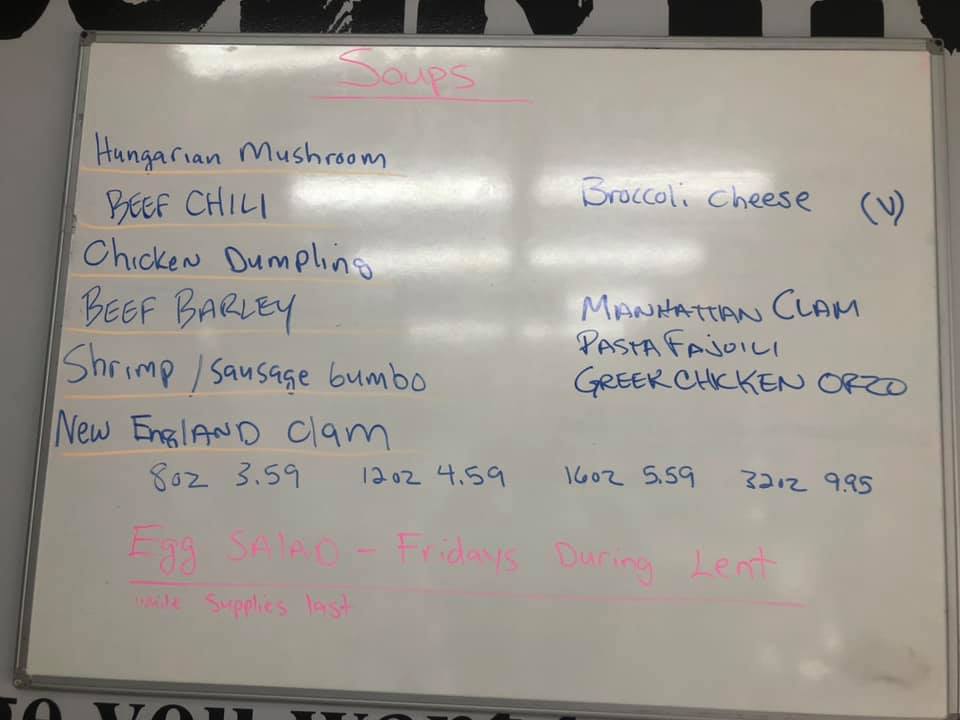 Soups
Hungarian Mushroom
BEEF CHILI
Chicken Dumpling
BEEF BARLEY
Shrimp / Sausage Gumbo
New ENGLAND Clam
Broccoli cheese (V)
MANHATTAN CLAM
PASTA FAJOILI
GREEK CHICKEN ORZO
8oz 3.59 12oz 4.59 16oz 5.59 32oz 9.95
Egg SALAD - Fridays During Lent
while Supplies last
you want